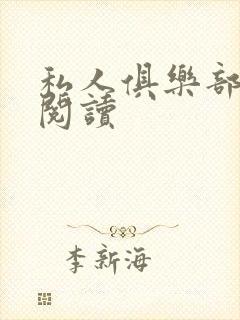 私人俱樂部
閱讀
李新海